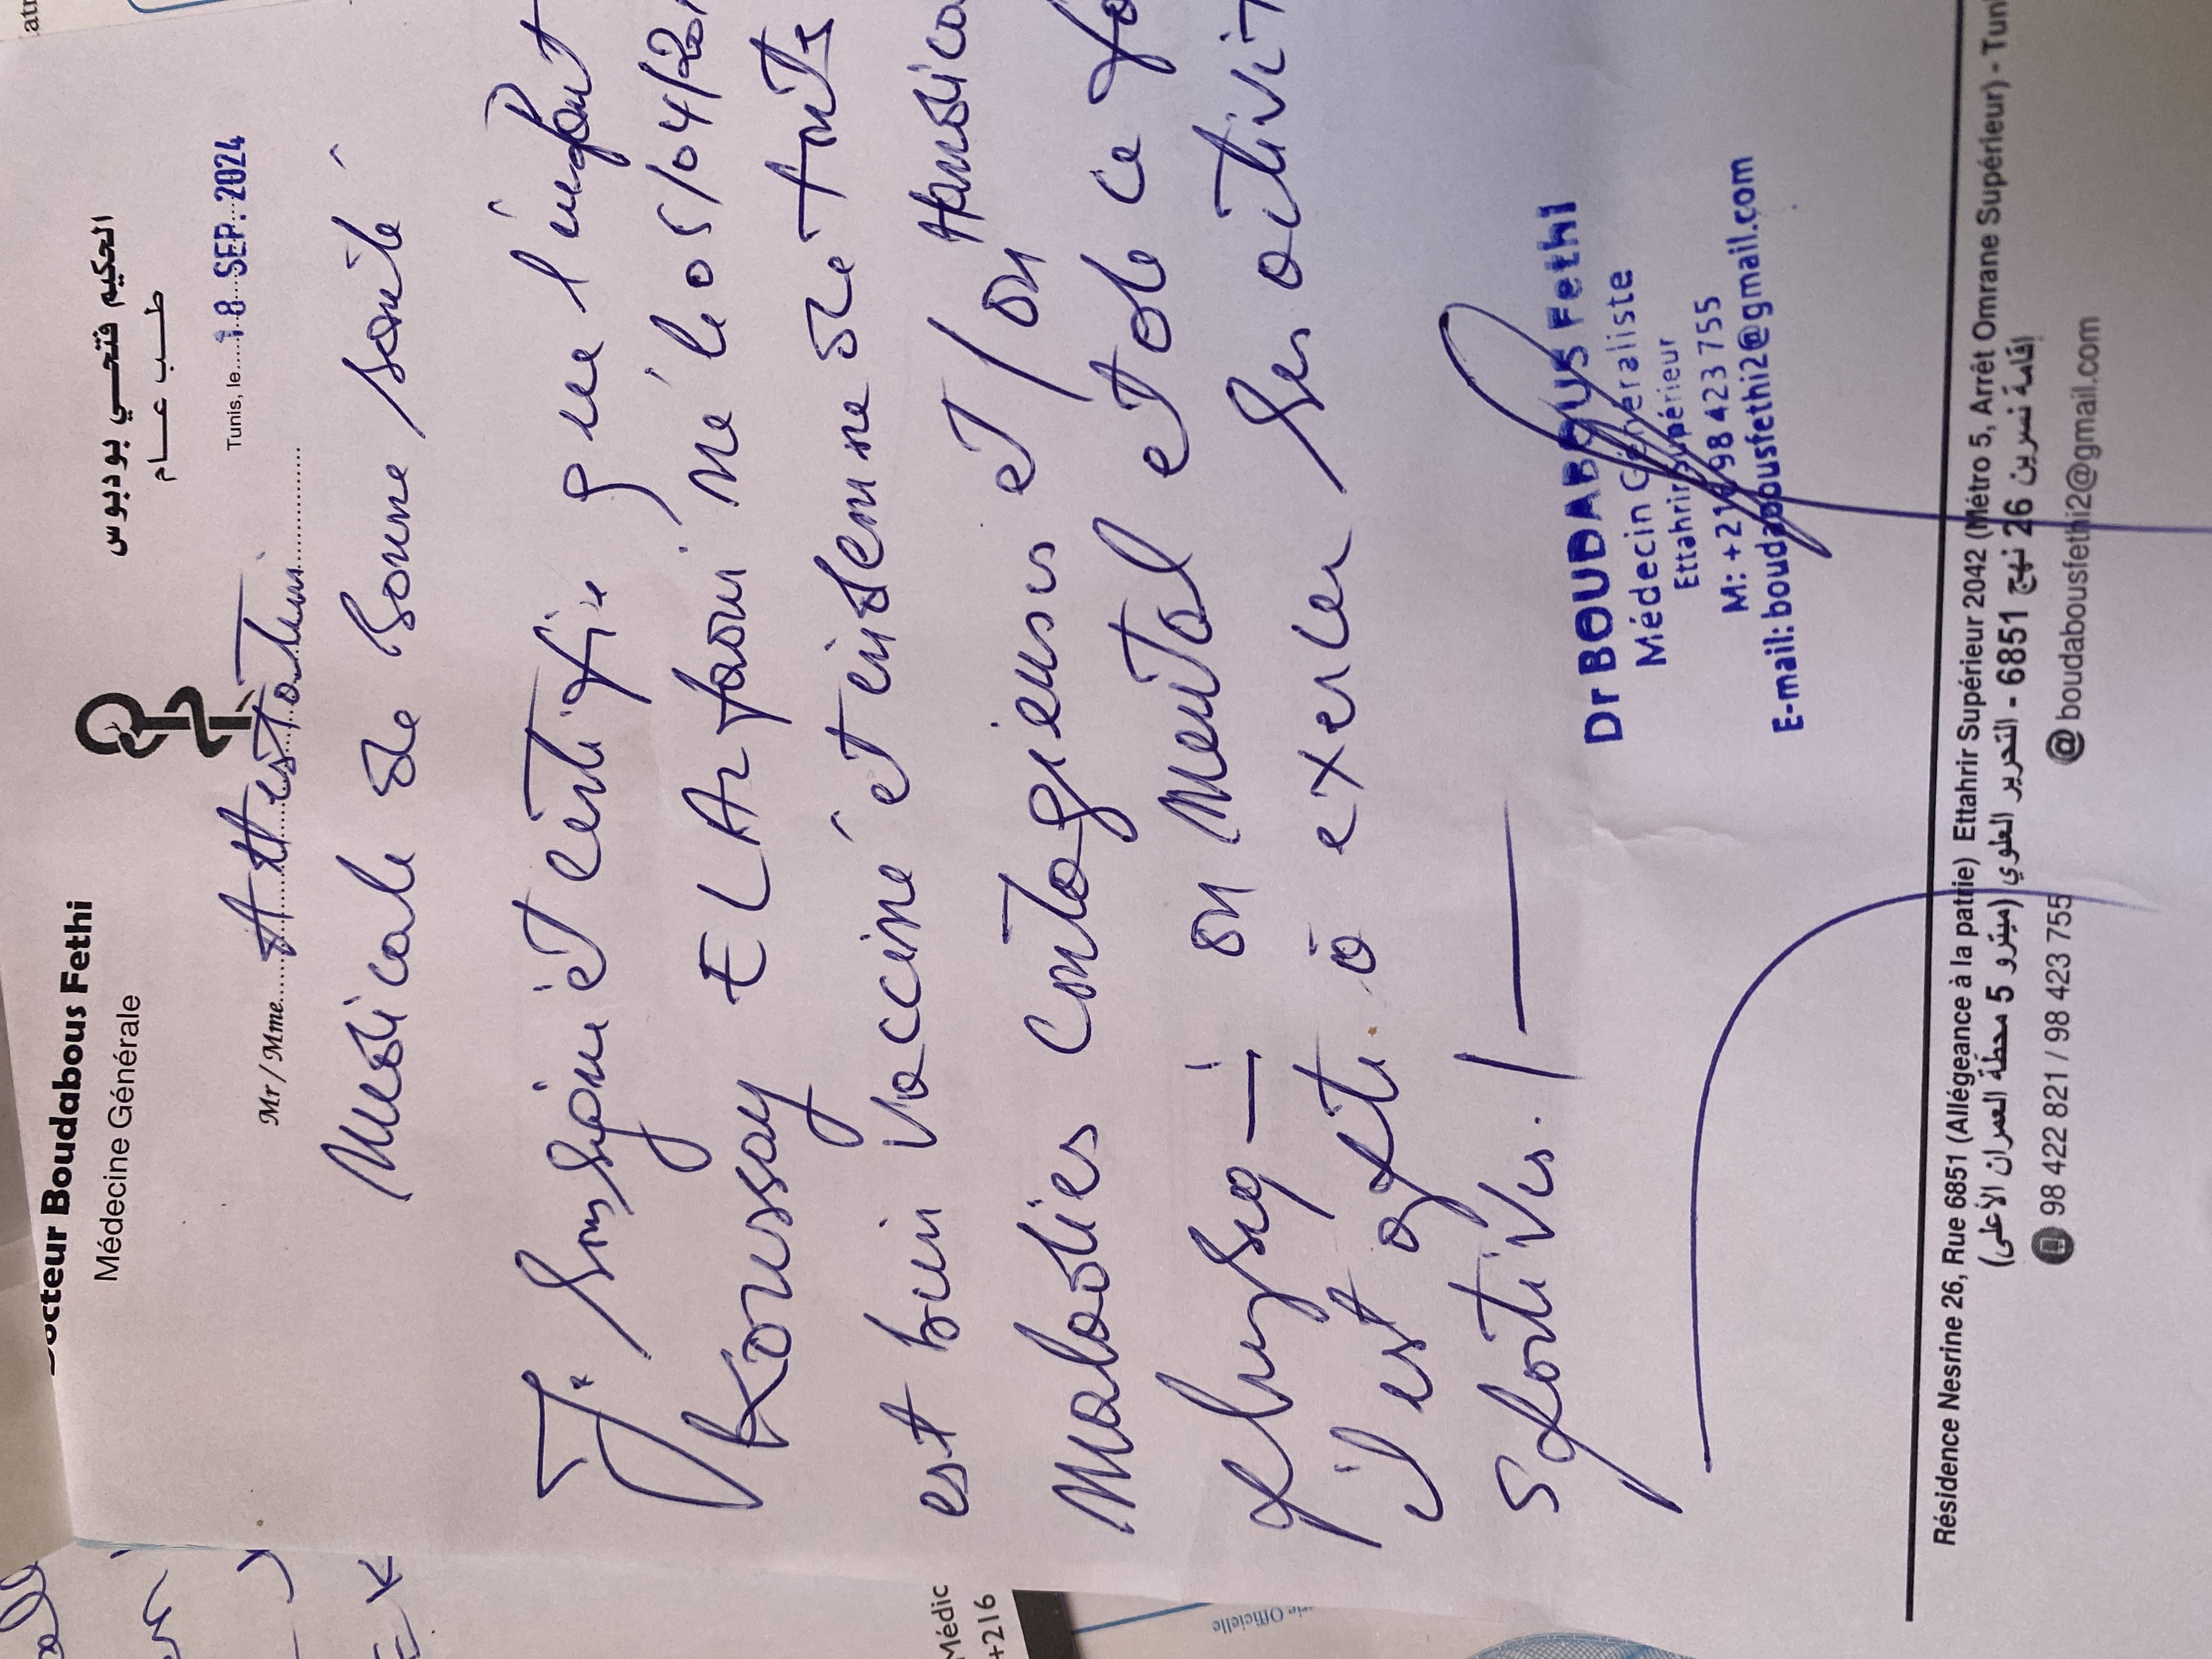 Docteur Boudabous Fethi
Médecine Générale
الحكيم فتحي بودبوس
طب عام
Tunis, le 18 SEP. 2024
Mr / Mme Attestation
Médicale de bonne santé
Je soussigné et certifie que l'enfant
Koussay EL Arfaoui né le 05/04/20
est bien vacciné et indemne de toutes
maladies contagieuses et / ou Handica
physiq ou Mental et de ce fa
il est apte à exercer ses activit
sportives. /
Dr BOUDABOUS Fethi
Médecin Généraliste
Ettahrir Supérieur
M: +216 98 423 755
E-mail: boudabousfethi2@gmail.com
Résidence Nesrine 26, Rue 6851 (Allégeance à la patrie) Ettahrir Supérieur 2042 (Métro 5, Arrêt Omrane Supérieur) - Tuni
إقامة نسرين 26 نهج 6851 - التحرير العلوي (ميترو 5 محطة العمران الأعلى)
98 422 821 / 98 423 755 @ boudabousfethi2@gmail.com
Médic
+216
Officielle